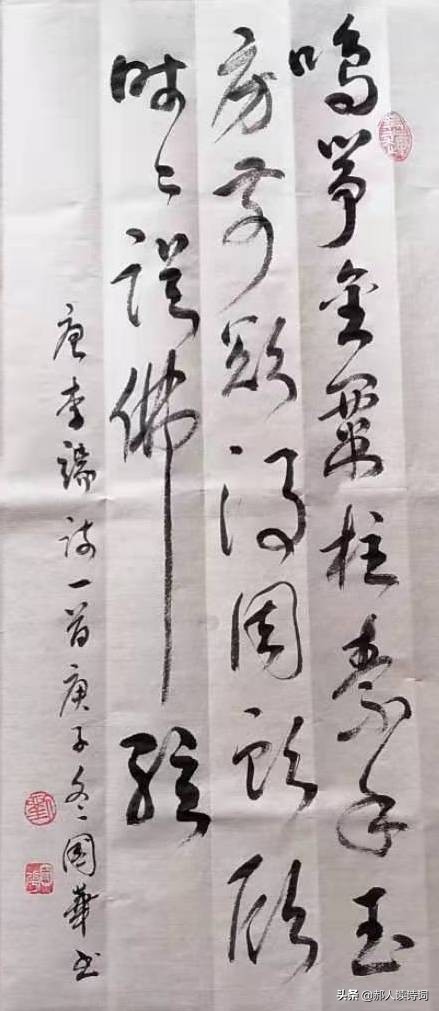 鳴箏金粟柱素手玉
房前欲得周郎顧
時〻誤拂絃
唐李端詩一首庚子冬國華书
头条 @郝人读诗词